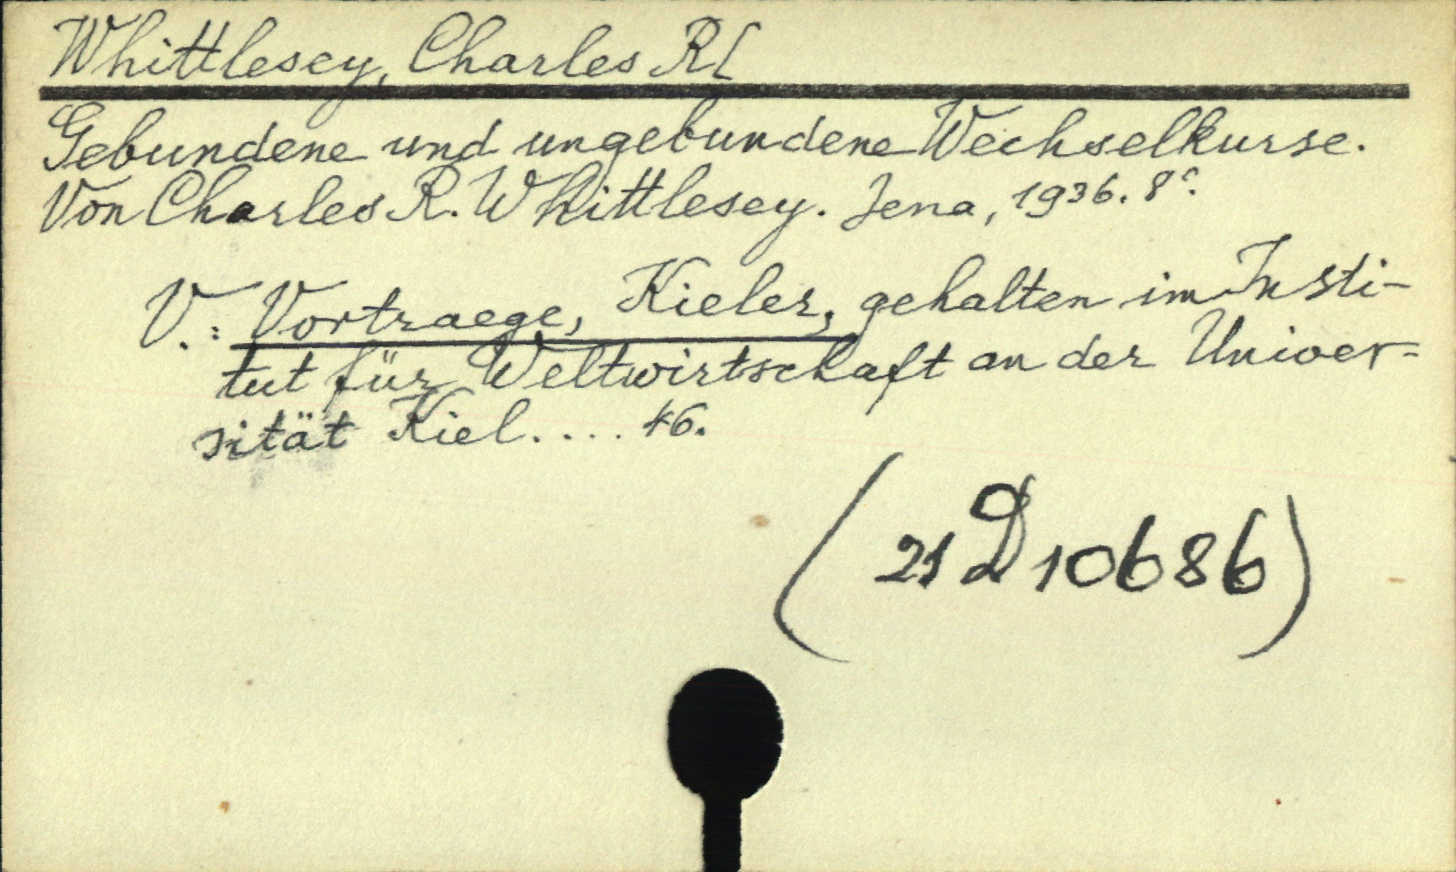 Whittlesey, Charles R[
Gebundene und ungebundene Wechselkurse.
Von Charles R. Whittlesey. Jena, 1936. 8°.
V.: Vortraege, Kieler, gehalten im Insti-
tut für Weltwirtschaft an der Univer-
sität Kiel.... 46.
(21 D 10686)